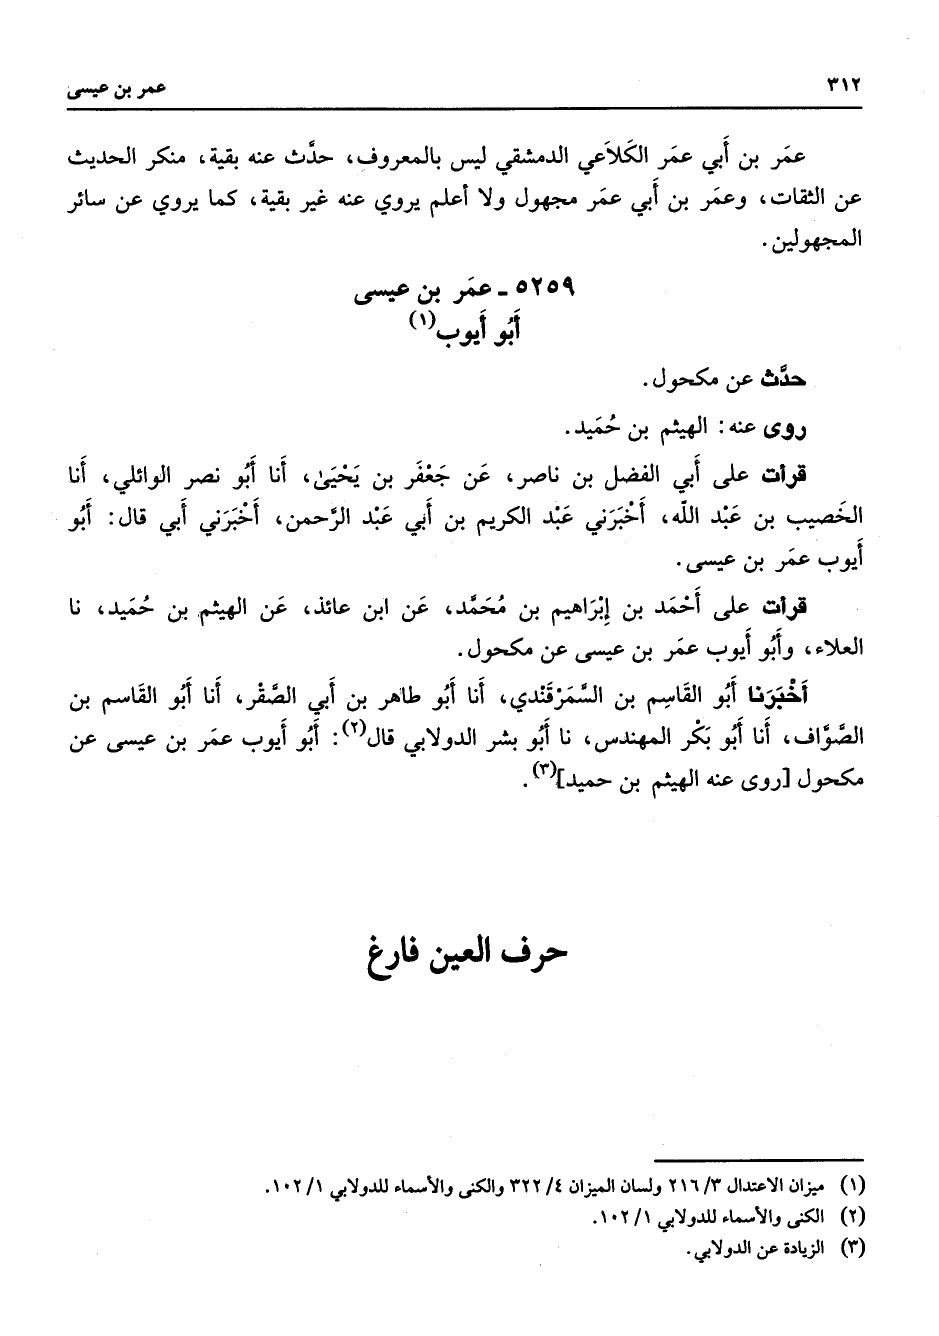 ٣١٢ عمر بن عيسى
عمَر بن أَبي عمَر الكَلاَعي الدمشقي ليس بالمعروف، حدَّث عنه بقية، منكر الحديث
عن الثقات، وعمَر بن أَبي عمَر مجهول ولا أعلم يروي عنه غير بقية، كما يروي عن سائر
المجهولين.
٥٢٥٩ - عمَر بن عيسى
أَبُو أَيوب(١)
حدَّث عن مكحول.
روى عنه: الهيثم بن حُمَيد.
قرأت على أَبي الفضل بن ناصر، عَن جَعْفَر بن يَحْيَىٰ، أَنا أَبُو نصر الوائلي، أَنا
الخَصيب بن عَبْد اللّه، أَخْبَرَني عَبْد الكريم بن أَبي عَبْد الرَّحمن، أَخْبَرَني أَبي قال: أَبُو
أَيوب عمَر بن عيسى.
قرأت على أَحْمَد بن إِبْرَاهيم بن مُحَمَّد، عَن ابن عائذ، عَن الهيثم بن حُمَيد، نا
العلاء، وأَبُو أَيوب عمَر بن عيسى عن مكحول.
أَخْبَرَنا أَبُو القَاسِم بن السَّمَرْقَنْدي، أَنا أَبُو طاهر بن أَبي الصَّقْر، أَنا أَبُو القَاسم بن
الصَّوَّاف، أَنا أَبُو بَكْر المهندس، نا أَبُو بشر الدولابي قال(٢): أَبُو أَيوب عمَر بن عيسى عن
مكحول [روى عنه الهيثم بن حميد](٣).
حرف العين فارغ
(١) ميزان الاعتدال ٣/ ٢١٦ ولسان الميزان ٤/ ٣٢٢ والكنى والأسماء للدولابي ١/ ١٠٢.
(٢) الكنى والأسماء للدولابي ١/ ١٠٢.
(٣) الزيادة عن الدولابي.